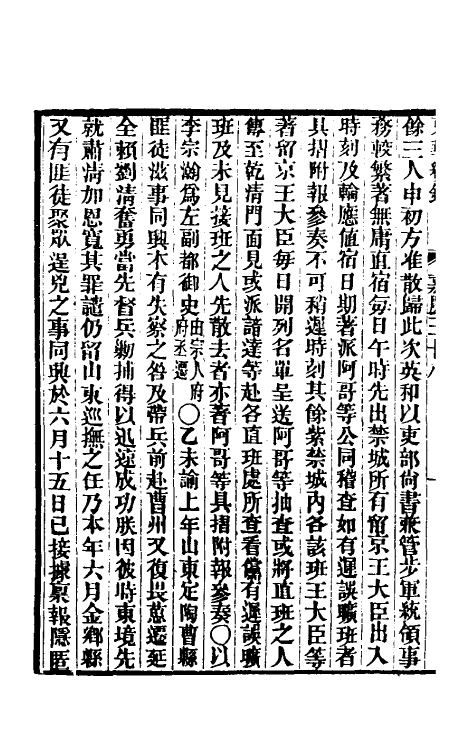 餘三人申初方准散歸此次英和以吏部尙書兼管步軍統領事
務較繁著無庸直宿每日午時先出禁城所有留京王大臣出入
時刻及輪應値宿日期著派阿哥等公同稽查如有遲誤曠班者
具摺附報參奏不可稍遲時刻其餘紫禁城內各該班王大臣等
著留京王大臣每日開列名單呈送阿哥等抽查或將直班之人
傳至乾清門面見或派諳達等赴各直班處所查看儻有遲誤曠
班及未見接班之人先散去者亦著阿哥等具摺附報參奏○以
李宗瀚爲左副都御史由宗人府府丞遷○乙未諭上年山東定陶曹縣
匪徒滋事同興本有失察之咎及帶兵前赴曹州又復畏葸遷延
全賴劉清奮勇當先督兵勦捕得以迅速成功朕因彼時東境先
就肅清加恩寬其罪譴仍留山東巡撫之任乃本年六月金鄉縣
又有匪徒聚眾逞兇之事同興於六月十五日已接據稟報隱匿